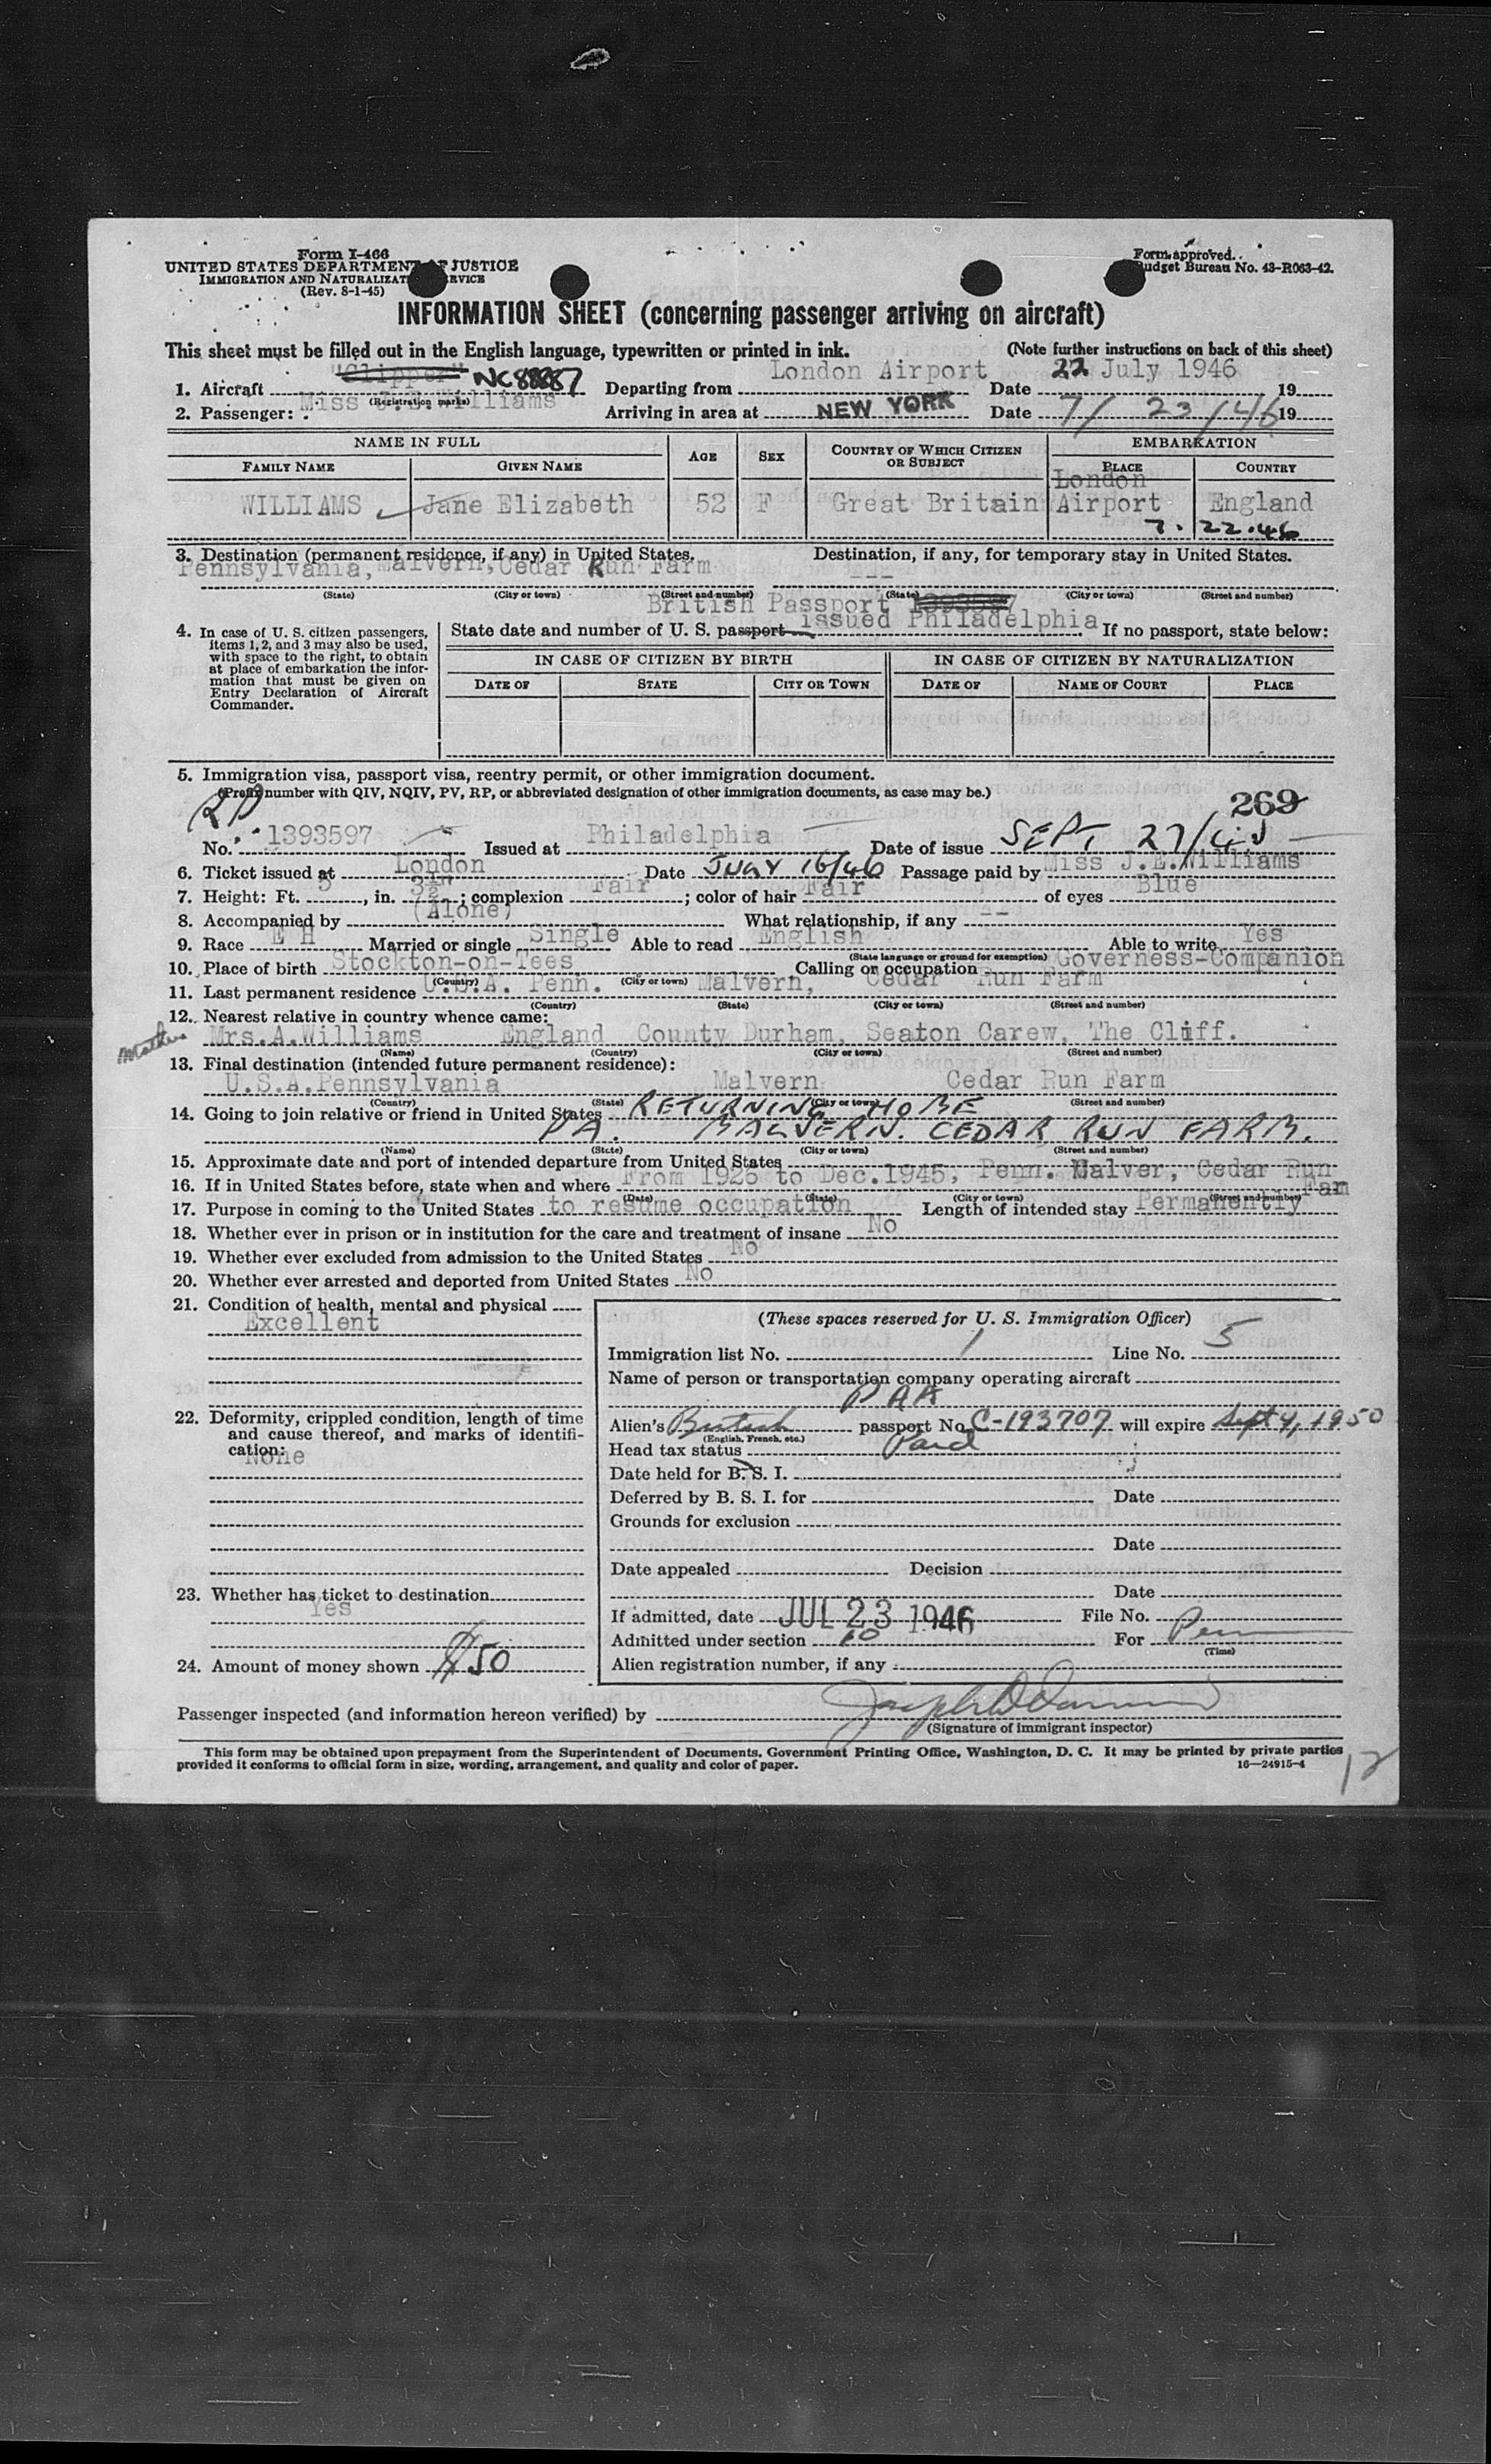 Form I-466
UNITED STATES DEPARTMENT OF JUSTICE
IMMIGRATION AND NATURALIZATION SERVICE
(Rev. 8-1-45)
Form approved.
Budget Bureau No. 43-R063-42.
INFORMATION SHEET (concerning passenger arriving on aircraft)
This sheet must be filled out in the English language, typewritten or printed in ink. (Note further instructions on back of this sheet)
1. Aircraft "Clipper" NC88887 Departing from London Airport Date 22 July 1946 19
(Registration marks)
2. Passenger: Miss J.E.Williams Arriving in area at NEW YORK Date 7/ 23/46 19
NAME IN FULL AGE SEX COUNTRY OF WHICH CITIZEN OR SUBJECT EMBARKATION
FAMILY NAME GIVEN NAME PLACE COUNTRY
WILLIAMS Jane Elizabeth 52 F Great Britain London Airport England
7. 22.46
3. Destination (permanent residence, if any) in United States. Destination, if any, for temporary stay in United States.
Pennsylvania, Malvern, Cedar Run Farm ---
(State) (City or town) (Street and number) (State) (City or town) (Street and number)
British Passport 1393597
4. In case of U. S. citizen passengers, items 1, 2, and 3 may also be used, with space to the right, to obtain at place of embarkation the information that must be given on Entry Declaration of Aircraft Commander.
State date and number of U. S. passport issued Philadelphia. If no passport, state below:
IN CASE OF CITIZEN BY BIRTH IN CASE OF CITIZEN BY NATURALIZATION
DATE OF STATE CITY OR TOWN DATE OF NAME OF COURT PLACE
5. Immigration visa, passport visa, reentry permit, or other immigration document.
(Prefix number with QIV, NQIV, PV, RP, or abbreviated designation of other immigration documents, as case may be.)
269
RP
No. 1393597 Issued at Philadelphia Date of issue SEPT 27/45
6. Ticket issued at London Date JULY 16/46 Passage paid by Miss J.E.Williams
7. Height: Ft. 5, in. 3½"; complexion Fair; color of hair Fair of eyes Blue
8. Accompanied by (Alone) What relationship, if any --
9. Race E H Married or single Single Able to read English Able to write Yes
(State language or ground for exemption)
10. Place of birth Stockton-on-Tees Calling or occupation Governess-Companion
(Country) (City or town)
11. Last permanent residence U.S.A. Penn. Malvern, Cedar Run Farm
(Country) (State) (City or town) (Street and number)
12. Nearest relative in country whence came:
Mother Mrs.A.Williams England County Durham, Seaton Carew, The Cliff.
(Name) (Country) (City or town) (Street and number)
13. Final destination (intended future permanent residence):
U.S.A.Pennsylvania Malvern Cedar Run Farm
(Country) (State) (City or town) (Street and number)
14. Going to join relative or friend in United States RETURNING HOME
PA. MALVERN. CEDAR RUN FARM.
(Name) (State) (City or town) (Street and number)
15. Approximate date and port of intended departure from United States
16. If in United States before, state when and where From 1926 to Dec.1945, Penn. Malver, Cedar Run Fam
(Date) (State) (City or town) (Street and number)
17. Purpose in coming to the United States to resume occupation Length of intended stay Permanently
18. Whether ever in prison or in institution for the care and treatment of insane No
19. Whether ever excluded from admission to the United States No
20. Whether ever arrested and deported from United States No
21. Condition of health, mental and physical
Excellent
22. Deformity, crippled condition, length of time and cause thereof, and marks of identification:
None
23. Whether has ticket to destination
Yes
24. Amount of money shown $50
(These spaces reserved for U. S. Immigration Officer)
Immigration list No. 1 Line No. 5
Name of person or transportation company operating aircraft
PAA
Alien's British passport No. C-193707 will expire Sept 4, 1950
(English, French, etc.)
Head tax status Paid
Date held for B. S. I.
Deferred by B. S. I. for Date
Grounds for exclusion
Date
Date appealed Decision
Date
If admitted, date JUL 23 1946 File No.
Admitted under section 10 For Perm
(Time)
Alien registration number, if any
Passenger inspected (and information hereon verified) by
(Signature of immigrant inspector)
This form may be obtained upon prepayment from the Superintendent of Documents, Government Printing Office, Washington, D. C. It may be printed by private parties
provided it conforms to official form in size, wording, arrangement, and quality and color of paper. 16—24915-4
12